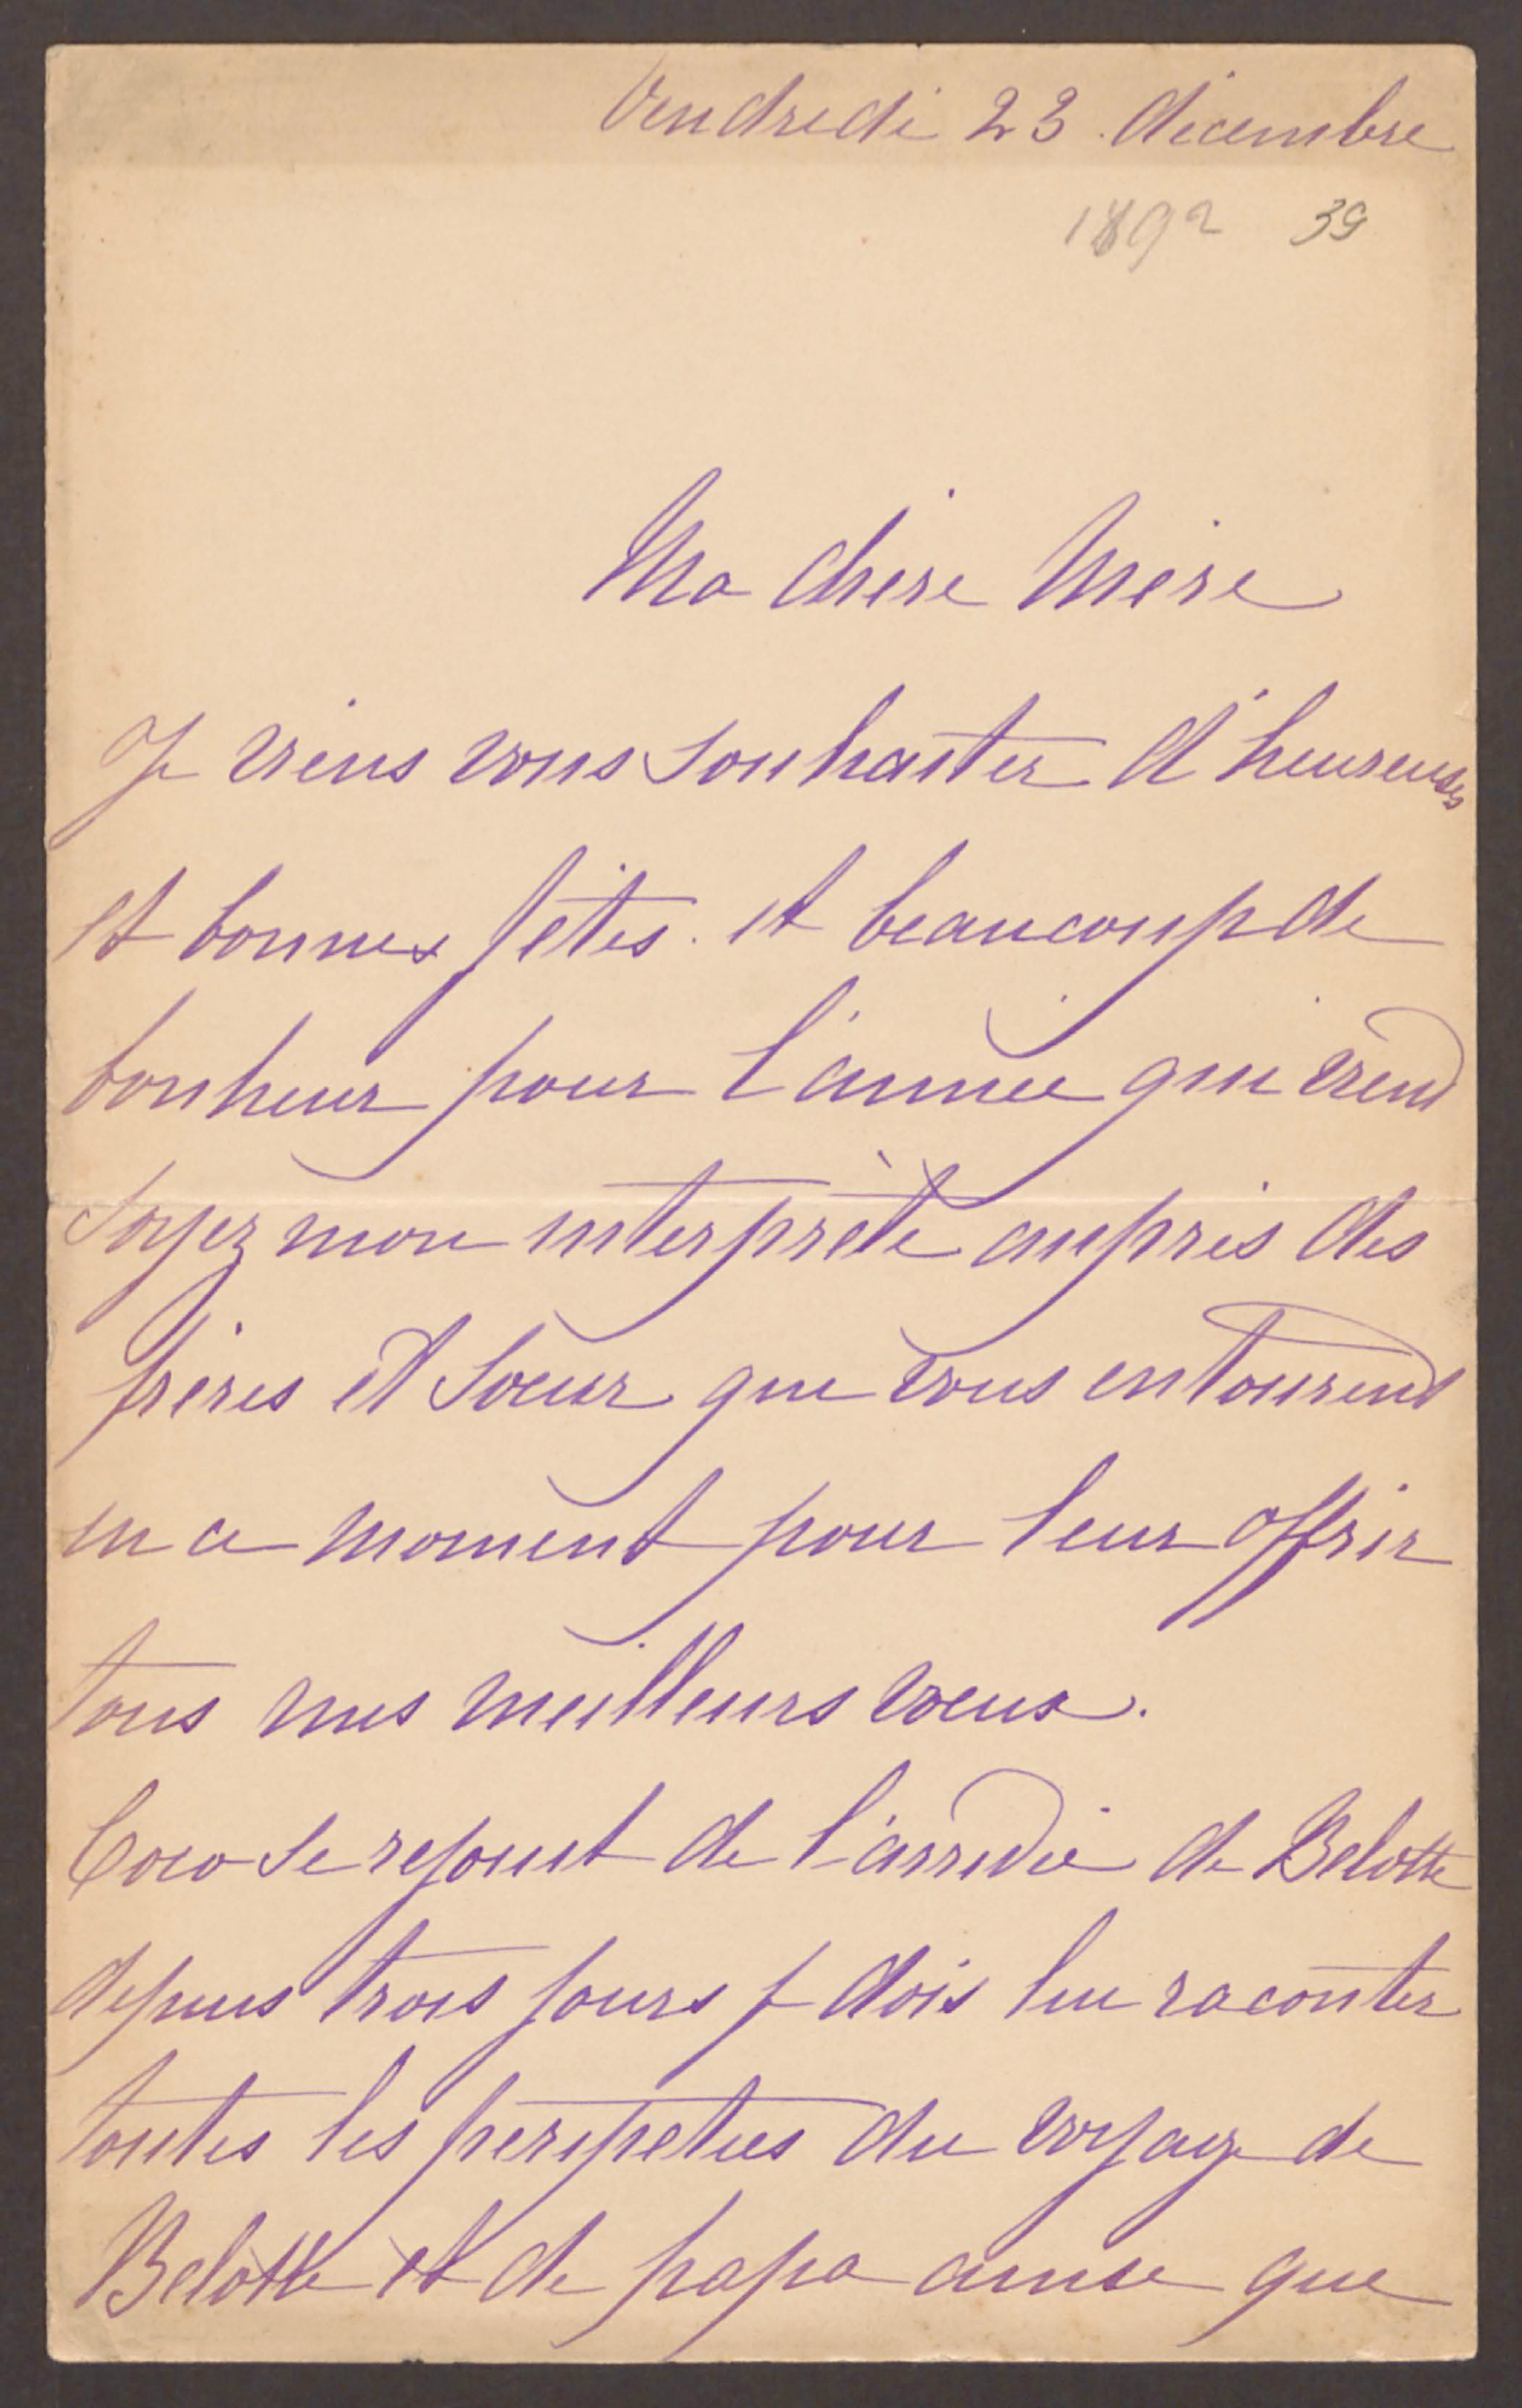 Vendredi 23 décembre
1892 39
Ma chère Mère
Je viens vous souhaiter d'heureuses
et bonnes fêtes. et beaucoup de
bonheur pour l'année qui vient
Soyez mon interprète auprès des
frères et soeur que vous entourent
en ce moment pour leur offrir
tous mes meilleurs voeux.
Coco se rejouit de l'arrivée de Belotte
depuis trois jours je dois lui raconter
toutes les peripeties du voyage de
Belotte et de papa ainse que